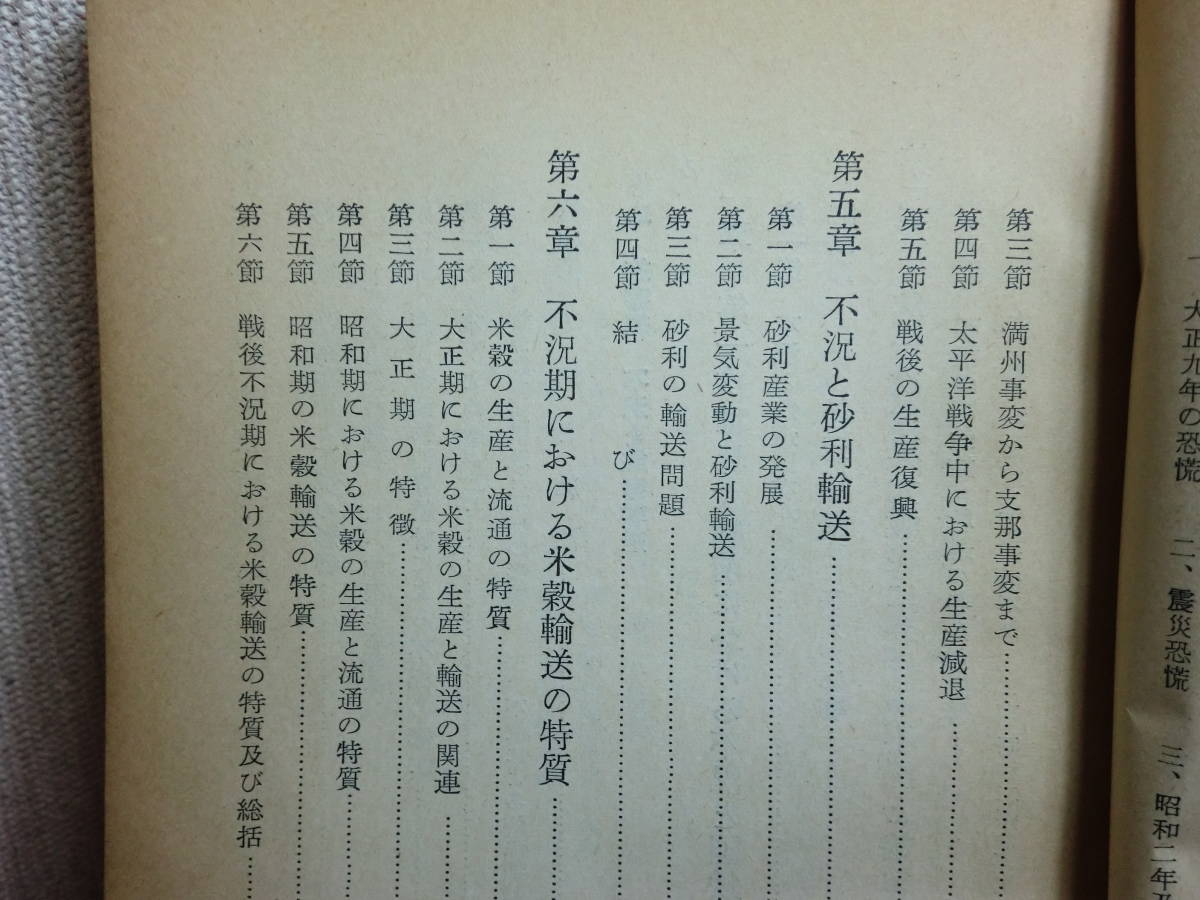 一、大正九年の恐慌　二、震災恐慌　三、昭和二年
第三節　満州事変から支那事変まで
第四節　太平洋戦争中における生産減退
第五節　戦後の生産復興
第五章　不況と砂利輸送
第一節　砂利産業の発展
第二節　景気変動と砂利輸送
第三節　砂利の輸送問題
第四節　結び
第六章　不況期における米穀輸送の特質
第一節　米穀の生産と流通の特質
第二節　大正期における米穀の生産と輸送の関連
第三節　大正期の特徴
第四節　昭和期における米穀の生産と流通の特質
第五節　昭和期の米穀輸送の特質
第六節　戦後不況期における米穀輸送の特質及び総括